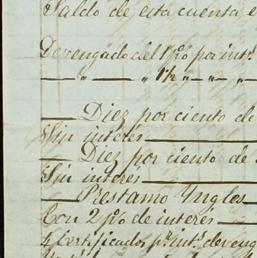 Saldo de esta cuenta e
Devengado del 1 p%o por int.s
— " — " 1½ " — " —
Diez por ciento de
Sin interés
Diez por ciento de
Sin interés
Prestamo Ingles
Con 2 p%o de interés
4 Certificados p.r int.s deveng